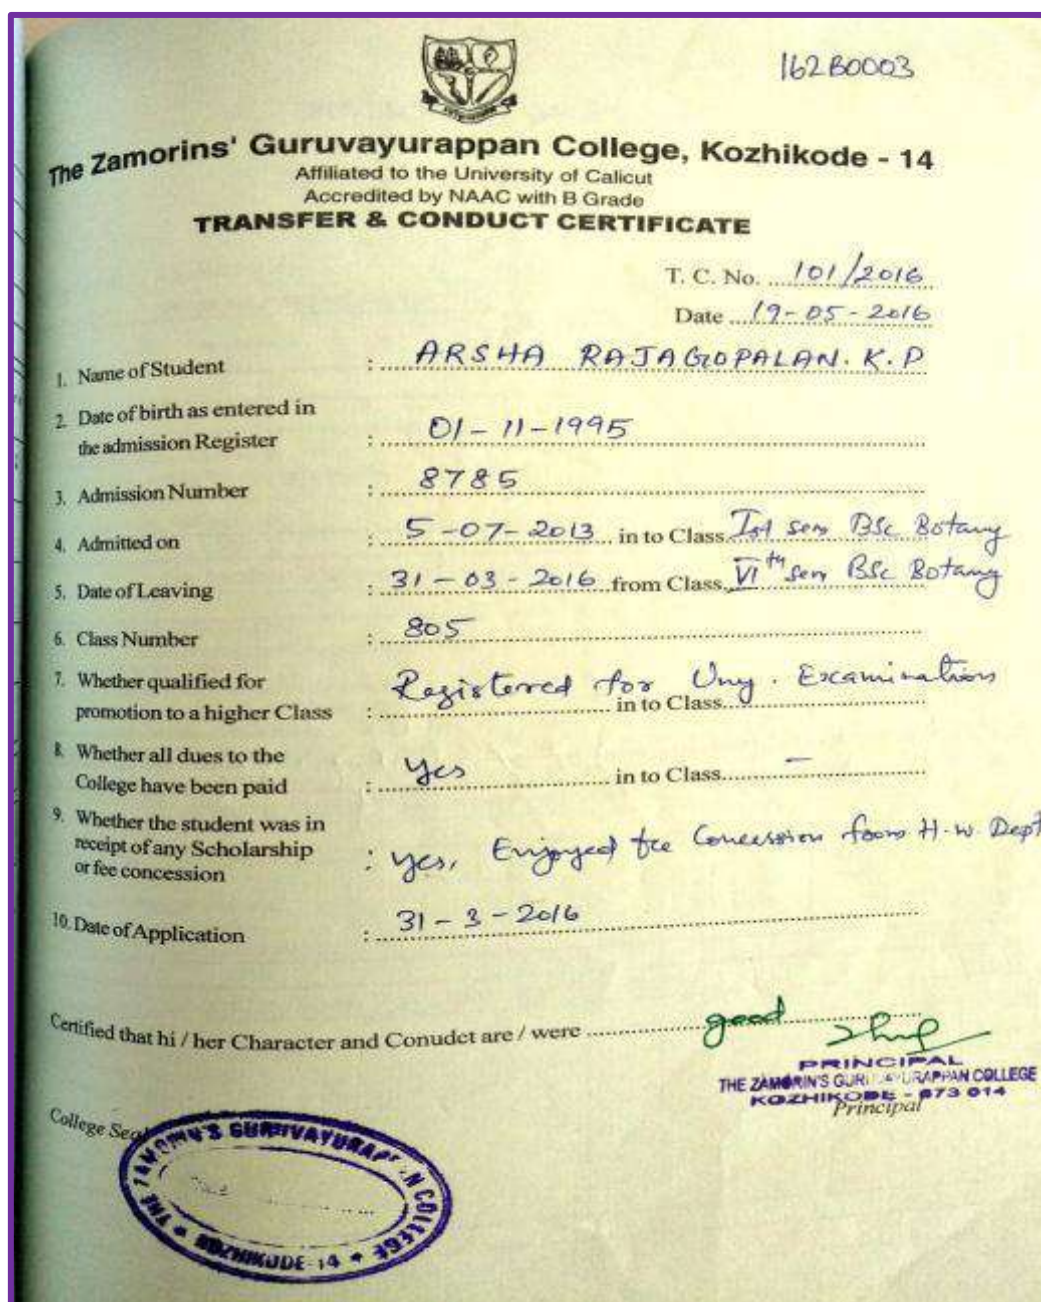 162B0003
The Zamorins' Guruvayurappan College, Kozhikode - 14
Affiliated to the University of Calicut
Accredited by NAAC with B Grade
TRANSFER & CONDUCT CERTIFICATE
T. C. No. 101/2016
Date 19-05-2016
1. Name of Student : ARSHA RAJAGOPALAN. K. P
2. Date of birth as entered in
the admission Register : 01-11-1995
3. Admission Number : 8785
4. Admitted on : 5-07-2013 in to Class Ist sem BSc Botany
5. Date of Leaving : 31-03-2016 from Class VIth sem BSc Botany
6. Class Number : 805
7. Whether qualified for Registered for Uny. Examinations
promotion to a higher Class : in to Class
8. Whether all dues to the
College have been paid : Yes in to Class -
9. Whether the student was in
receipt of any Scholarship
or fee concession : Yes, Enjoyed fee Concession from H.W. Dept
10. Date of Application : 31-3-2016
Certified that hi / her Character and Conudct are / were good
PRINCIPAL
THE ZAMORIN'S GURUVAYURAPPAN COLLEGE
KOZHIKODE - 673 014
Principal
College Seal
THE ZAMORIN'S GURUVAYURAPPAN COLLEGE
KOZHIKODE-14